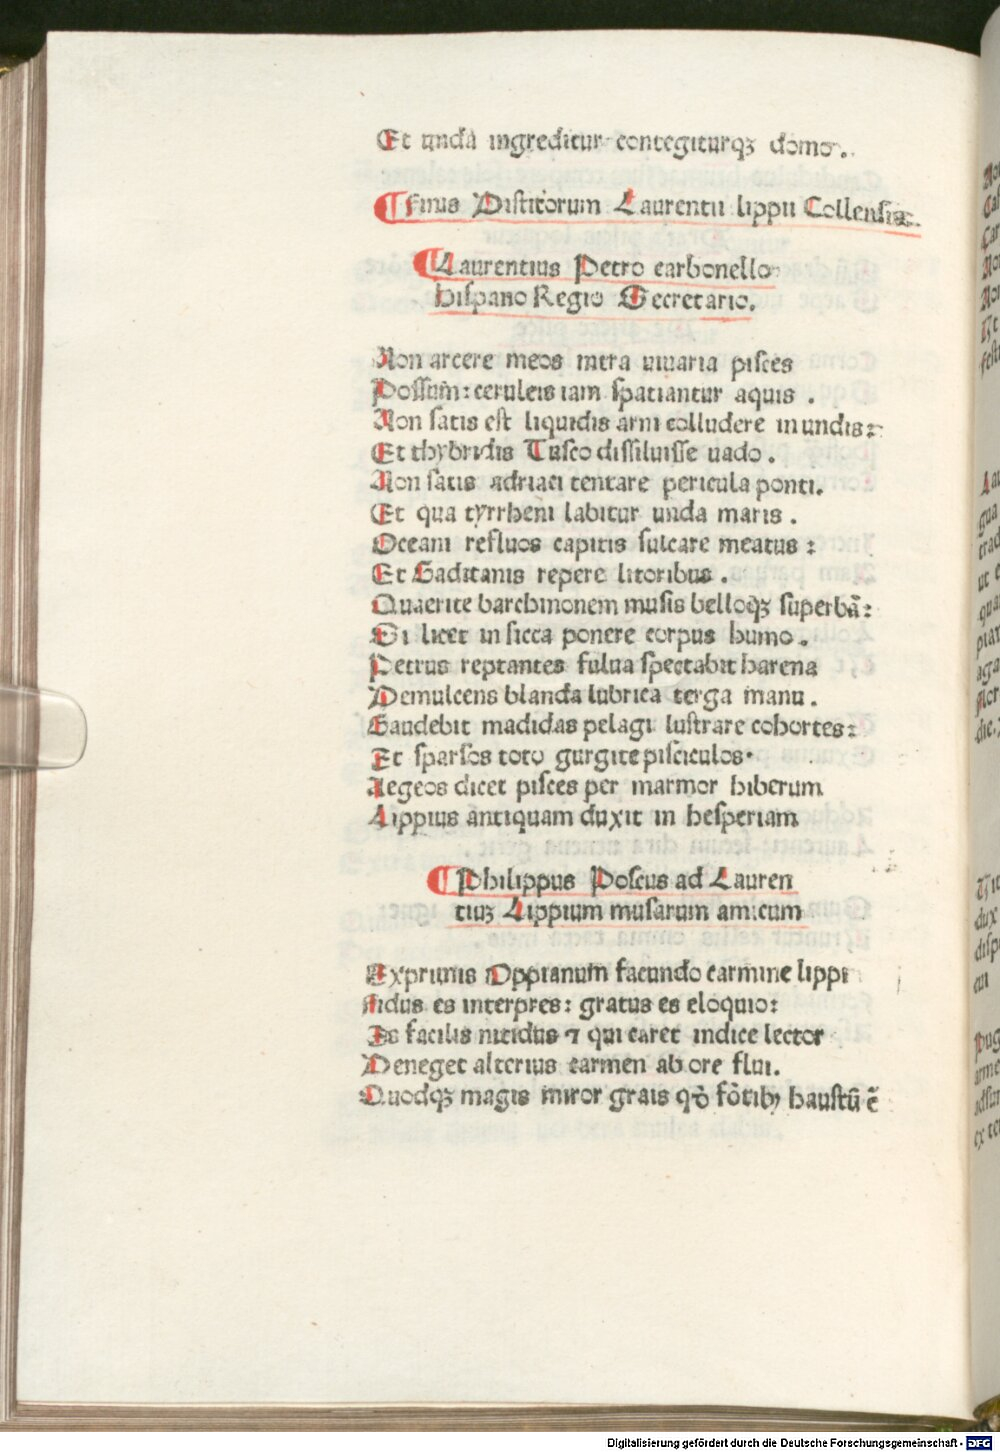 Et unda ingreditur contegiturqȝ domo.
¶ finus Distitorum Laurentii lippii Collensis.
¶ Laurentius Petro carbonello
hispano Regio Secretario.
Non arcere meos intra uiuaria pisces
Possum̃: ceruleis iam spatiantur aquis .
Non satis est liquidis arni colludere in undis:
Et thybridis Tusco dissiluisse uado .
Non satis adriaci tentare pericula ponti.
Et qua tyrrheni labitur unda maris .
Oceani refluos capitis sulcare meatus :
Et Gaditanis repere litoribus .
Quaerite barchinonem musis belloqȝ superbā:
Si licet in sicca ponere corpus humo .
Petrus reptantes fulua spectabit harena
Demulcens blanda lubrica terga manu .
Gaudebit madidas pelagi lustrare cohortes:
Et sparsos toto gurgite pisciculos.
Aegeos dicet pisces per marmor hiberum
Lippius antiquam duxit in hesperiam
¶ Philippus Poscus ad Lauren
tiuȝ Lippium musarum amicum
Exprimis Oppianum facundo carmine lippi
fidus es interpres: gratus es eloquio:
Is facilis nitidus ⁊ qui caret indice lector
Deneget alterius carmen ab ore flui.
Quodqȝ magis miror grais qō fōtibꝫ haustū ē
Digitalisierung gefördert durch die Deutsche Forschungsgemeinschaft - DFG